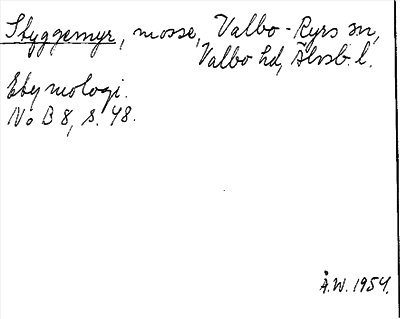 Styggemyr, mosse, Valbo-Ryrs sn,
Valbo hd, Älvsb. l.
Etymologi.
No B 8, s. 48.
Å.W. 1954.